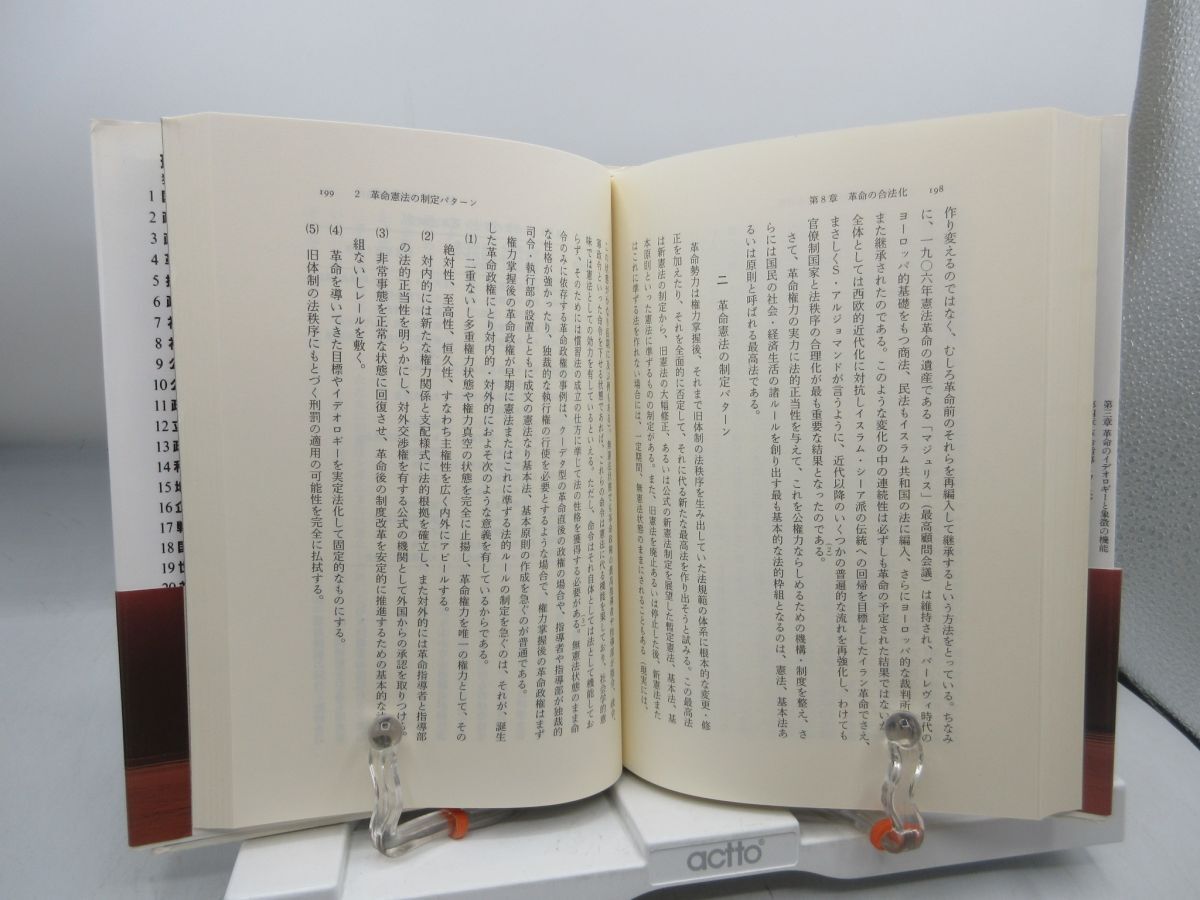 第8章 革命の合法化 198
作り変えるのではなく、むしろ革命前のそれらを再編入して継承するという方法をとっている。ちなみ
に、一九〇六年憲法革命の遺産である「マジュリス」(最高顧問会議)は維持され、パーレヴィ時代の
ヨーロッパ的基礎をもつ商法、民法もイスラム共和国の法に編入、さらにヨーロッパ的な裁判所
また継承されたのである。このような変化の中の連続性は必ずしも革命の予定された結果ではない
全体としては西欧的近代化に対抗しイスラム・シーア派の伝統への回帰を目標としたイラン革命でさえ、
まさしくS・アルジョマンドが言うように、近代以降のいくつかの普遍的な流れを再強化し、わけても
官僚制国家と法秩序の合理化が最も重要な結果となったのである。
さて、革命権力の実力に法的正当性を与えて、これを公権力ならしめるための機構・制度を整え、さ
らには国民の社会・経済生活の諸ルールを創り出す最も基本的な法的枠組となるのは、憲法、基本法あ
るいは原則と呼ばれる最高法である。
二 革命憲法の制定パターン
革命勢力は権力掌握後、それまで旧体制の法秩序を生み出していた法規範の体系に根本的な変更・修
正を加えたり、それを全面的に否定して、それに代る新たな最高法を作り出そうと試みる。この最高法
は新憲法の制定から、旧憲法の大幅修正、あるいは公式の新憲法制定を展望した暫定憲法、基本法、基
本原則といった憲法に準ずるものの制定がある。また、旧憲法を廃止あるいは停止した後、新憲法また
はこれに準ずる法を作れない場合には、一定期間、無憲法状態のままにされることもある(現実には、
199 2 革命憲法の制定パターン
軍政令といった命令を下せる状態であれば、これらの命令は憲法に代る機能を果しており、社会学的意
味では憲法としての効力を有しているといえる。ただし、命令はそれ自体としては法として機能してお
らず、そのためには慣習法の成立の仕方に準じて法の性格を獲得する必要がある。無憲法状態のまま命
令のみに依存する革命政権の事例は、クーデタ型の革命直後の政権の場合や、指導者や指導部が独裁的
な性格が強かったり、独裁的な執行権の行使を必要とするような場合で、権力掌握後の革命政権はまず
司令・執行部の設置とともに成文の憲法なり基本法、基本原則の作成を急ぐのが普通である。
権力掌握後の革命政権が早期に憲法またはこれに準ずる法的ルールの制定を急ぐのは、それが、誕生
した革命政権にとり対内的・対外的におよそ次のような意義を有しているからである。
(1) 二重ないし多重権力状態や権力真空の状態を完全に止揚し、革命権力を唯一の権力として、その
絶対性、至高性、恒久性、すなわち主権性を広く内外にアピールする。
(2) 対内的には新たな権力関係と支配様式に法的根拠を確立し、また対外的には革命指導者と指導部
の法的正当性を明らかにし、対外交渉権を有する公式の機関として外国からの承認を取りつける。
(3) 非常事態を正常な状態に回復させ、革命後の制度改革を安定的に推進するための基本的な
組ないしレールを敷く。
(4) 革命を導いてきた目標やイデオロギーを実定法化して固定的なものにする。
(5) 旧体制の法秩序にもとづく刑罰の適用の可能性を完全に払拭する。
第三章 革命のイデオロギーと象徴の機能
1
2
3
4
5
6
7
8
9
10
11
12 立
13 政
14 利
15 地
16 企
17 戦
18 国
19
20
actto